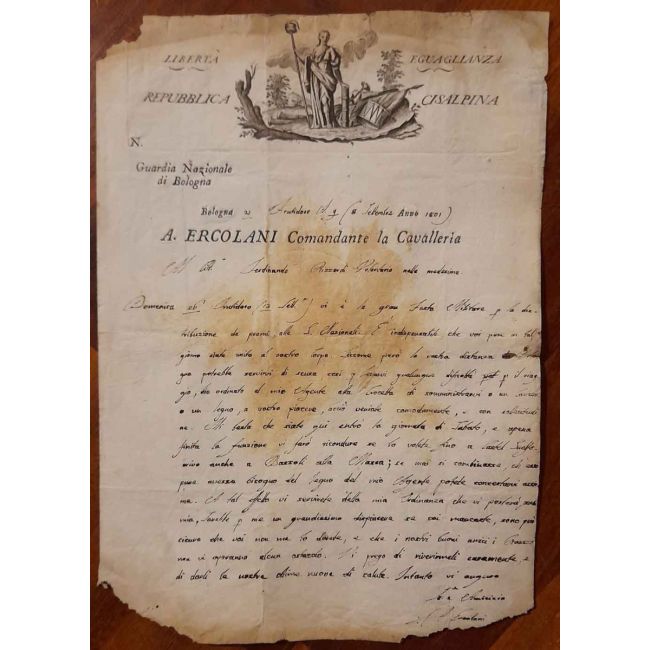 LIBERTÀ EGUAGLIANZA
REPUBBLICA CISALPINA
N.
Guardia Nazionale
di Bologna
Bologna Frutidoro (8 Settembre Anno 1801)
A. ERCOLANI Comandante la Cavalleria
Ferdinando Volontario nella medesima
Domenica 26 Frutidoro (13 Sett.) vi è la gran Festa Militare p la dis
tribuzione de premj alle G. Nazionali. E' indispensabile che voi pure in tal
giorno siate unito al vostro Corpo siccome però la vostra distanza
potrebbe servirvi di scusa così p qualunque p il viag
gio, ho ordinato al mio Agente alla di somministrarvi o un
o un legno, a vostro piacere, acciò veniate comodamente, e con sollecitudi
ne. Mi basta che siate qui entro la giornata di Sabato, e appena
finita la funzione vi farò ricondure se lo volete fino a Castel
rivo anche a alla Massa; se mai si combinasse, che
pure avesse bisogno del legno del mio Agente potete concertarvi
A tal effetto vi servirete della mia Ordinanza che vi porterà
mia, p me un grandissimo dispiacere se voi mancaste, sono però
sicuro che voi non me lo darete, e che i nostri buoni
no vi opporanno alcun ostacolo. Vi prego di riverirmeli caramente, e
di darli le nostre ottime nuove di salute. Intanto vi auguro
Ercolani